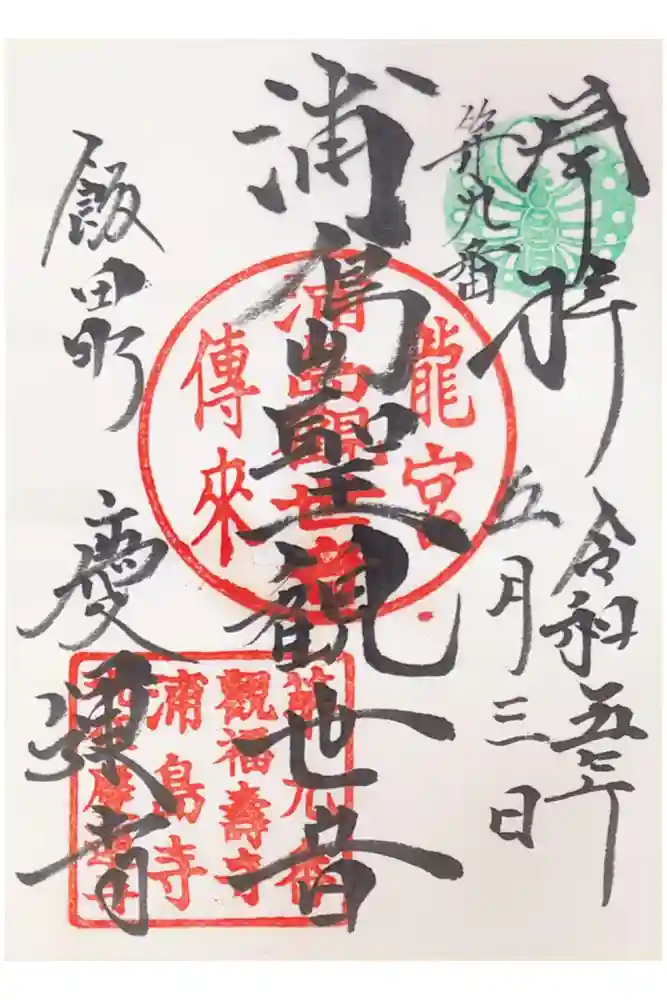 奉拝
第九番
令和五年
五月三日
浦島聖観世音
飯田町
慶運寺
龍宮
浦島觀世音
傳來
第九番
觀福壽寺
浦島寺